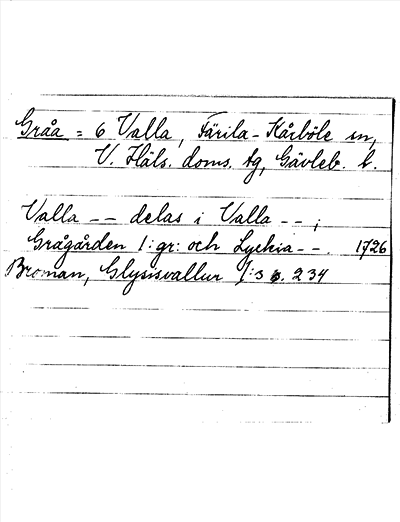 Gråa = 6 Valla, Färila-Kårböle sn,
V. Häls. doms. tg, Gävleb. l.
Valla -- delas i Valla --;
Grågården 1:gr: och Lyckia --. 1726
Broman, Glysisvallur I:3 s. 234